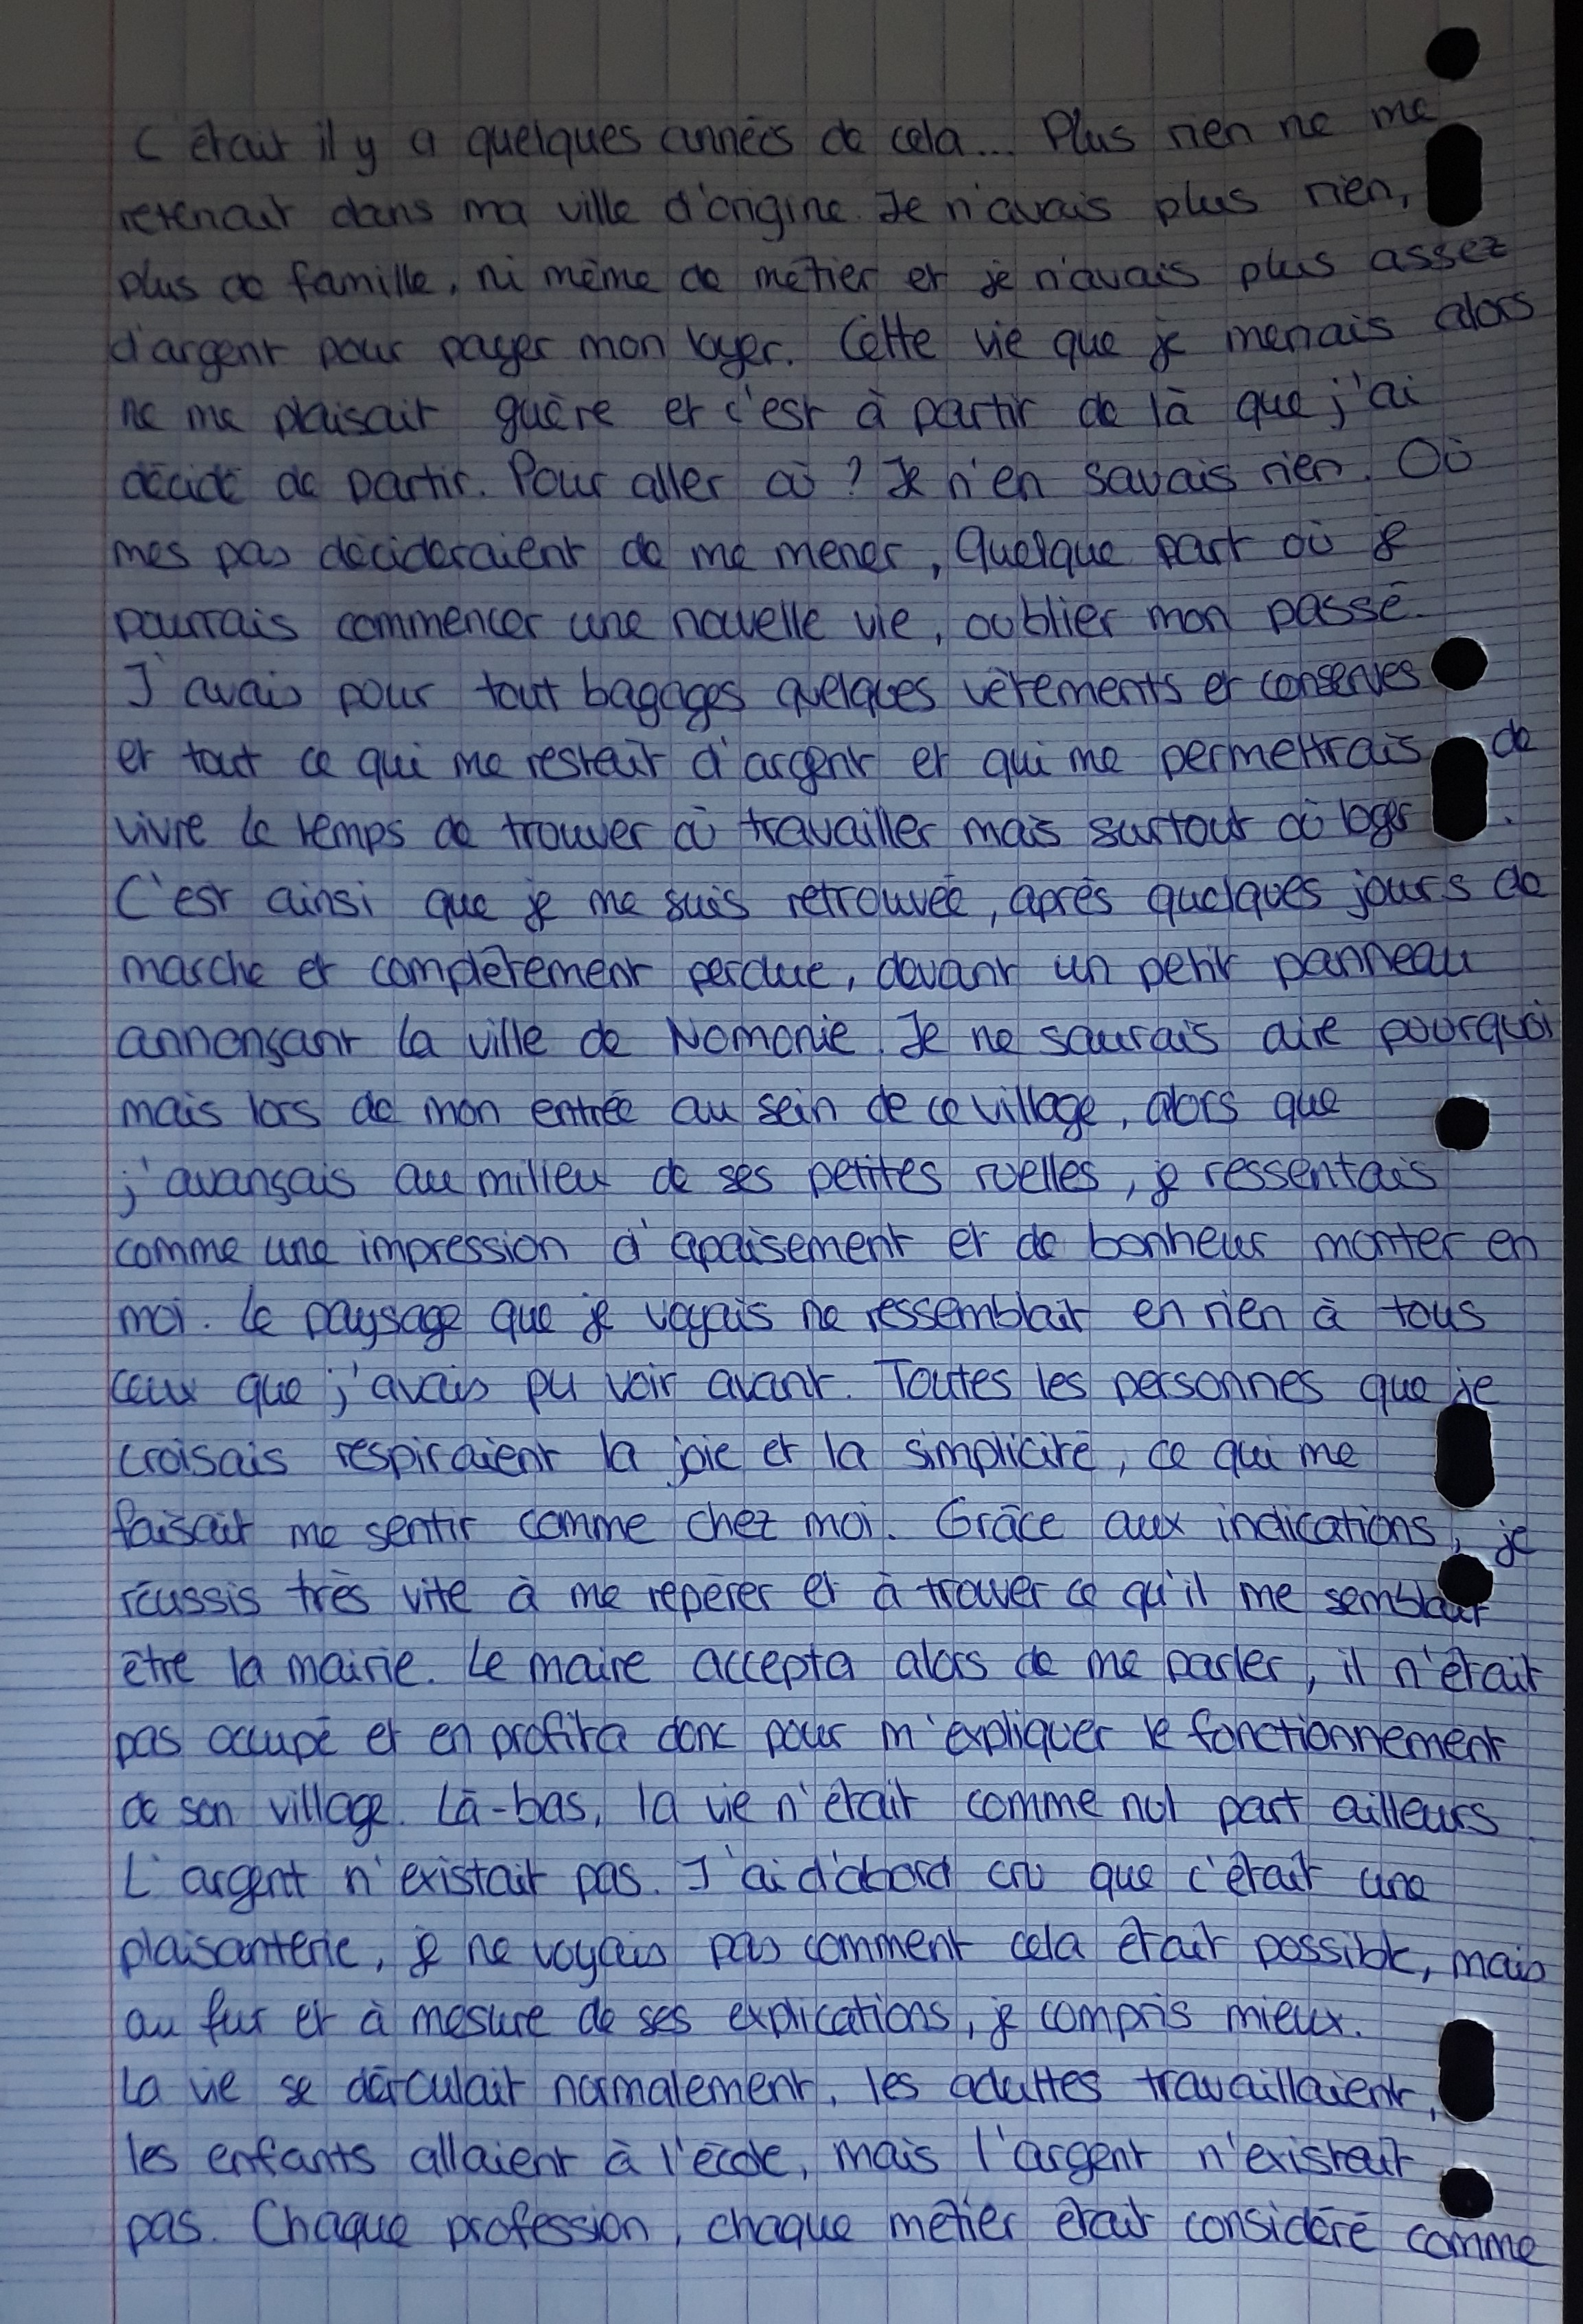 C'était il y a quelques années de cela... Plus rien ne me
retenait dans ma ville d'origine. Je n'avais plus rien,
plus de famille, ni même de métier et je n'avais plus assez
d'argent pour payer mon loyer. Cette vie que je menais alors
ne me plaisait guère et c'est à partir de là que j'ai
décidé de partir. Pour aller où ? Je n'en savais rien. Où
mes pas décideraient de me mener, Quelque part où je
pourrais commencer une nouvelle vie, oublier mon passé.
J'avais pour tout bagages quelques vêtements et conserves
et tout ce qui me restait d'argent et qui me permettrais de
vivre le temps de trouver où travailler mais surtout où loger.
C'est ainsi que je me suis retrouvée, après quelques jours de
marche et complètement perdue, devant un petit panneau
annonçant la ville de Nomonie. Je ne saurais dire pourquoi
mais lors de mon entrée au sein de ce village, alors que
j'avançais au milieu de ses petites ruelles, je ressentais
comme une impression d'apaisement et de bonheur monter en
moi. Le paysage que je voyais ne ressemblait en rien à tous
ceux que j'avais pu voir avant. Toutes les personnes que je
croisais respiraient la joie et la simplicité, ce qui me
faisait me sentir comme chez moi. Grâce aux indications, je
réussis très vite à me repérer et à trouver ce qu'il me semblait
être la mairie. Le maire accepta alors de me parler, il n'était
pas occupé et en profita donc pour m'expliquer le fonctionnement
de son village. Là-bas, la vie n'était comme nul part ailleurs.
L'argent n'existait pas. J'ai d'abord cru que c'était une
plaisanterie, je ne voyais pas comment cela était possible, mais
au fur et à mesure de ses explications, je compris mieux.
La vie se déroulait normalement, les adultes travaillaient,
les enfants allaient à l'école, mais l'argent n'existait
pas. Chaque profession, chaque métier était considéré comme